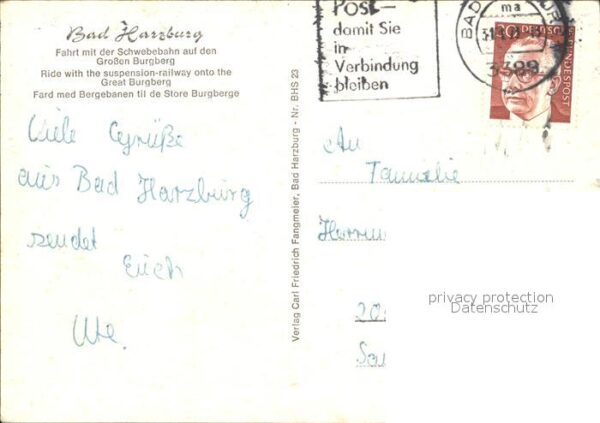 Bad Harzburg
Fahrt mit der Schwebebahn auf den
Großen Burgberg
Ride with the suspension-railway onto the
Great Burgberg
Fard med Bergebanen til de Store Burgberge
Viele Grüße
aus Bad Harzburg
sendet
Euch
Ute.
Verlag Carl Friedrich Fangmeier, Bad Harzburg - Nr. BHS 23
Post –
damit Sie
in
Verbindung
bleiben
BAD
ma
3388
BUNDESPOST
An
Familie
privacy protection
Datenschutz